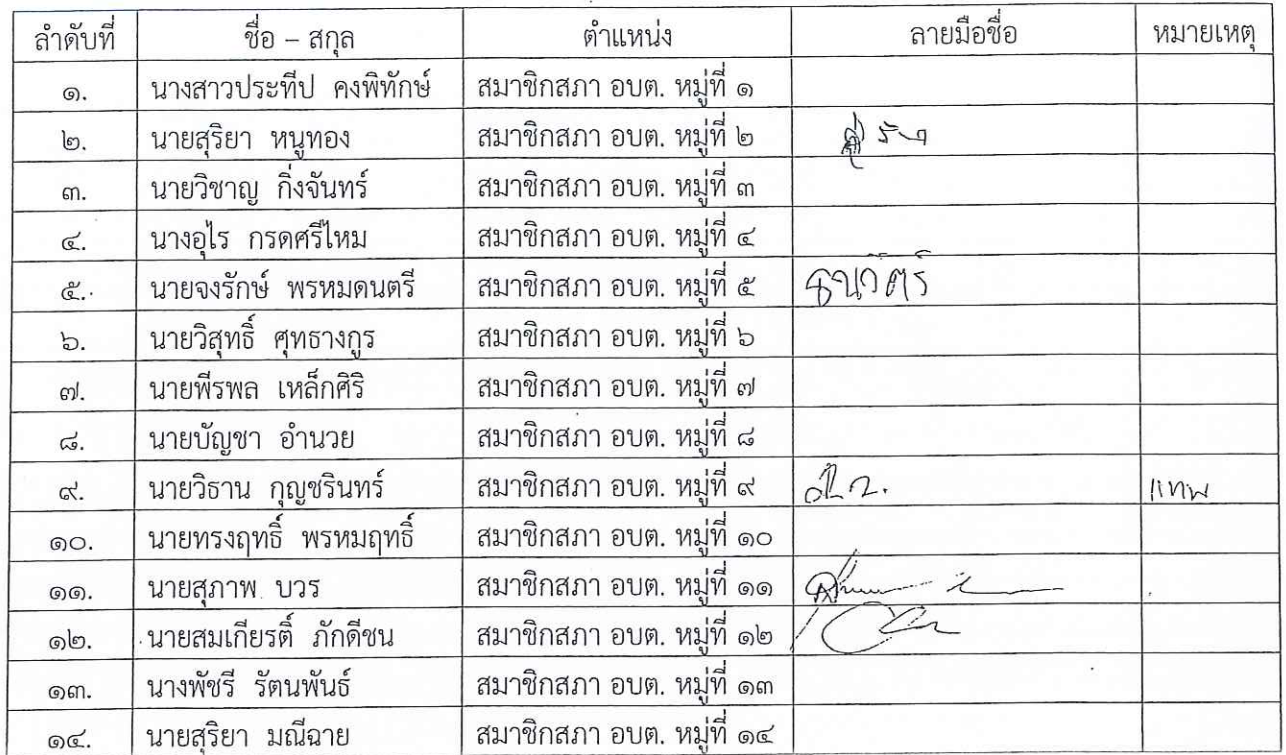 ลำดับที่ ชื่อ – สกุล ตำแหน่ง ลายมือชื่อ หมายเหตุ
๑. นางสาวประทีป คงพิทักษ์ สมาชิกสภา อบต. หมู่ที่ ๑
๒. นายสุริยา หนูทอง สมาชิกสภา อบต. หมู่ที่ ๒
๓. นายวิชาญ กิ่งจันทร์ สมาชิกสภา อบต. หมู่ที่ ๓
๔. นางอุไร กรดศรีไหม สมาชิกสภา อบต. หมู่ที่ ๔
๕. นายจงรักษ์ พรหมดนตรี สมาชิกสภา อบต. หมู่ที่ ๕
๖. นายวิสุทธิ์ ศุทธางกูร สมาชิกสภา อบต. หมู่ที่ ๖
๗. นายพีรพล เหล็กศิริ สมาชิกสภา อบต. หมู่ที่ ๗
๘. นายบัญชา อำนวย สมาชิกสภา อบต. หมู่ที่ ๘
๙. นายวิธาน กุญชรินทร์ สมาชิกสภา อบต. หมู่ที่ ๙ แทพ
๑๐. นายทรงฤทธิ์ พรหมฤทธิ์ สมาชิกสภา อบต. หมู่ที่ ๑๐
๑๑. นายสุภาพ บวร สมาชิกสภา อบต. หมู่ที่ ๑๑
๑๒. นายสมเกียรติ์ ภักดีชน สมาชิกสภา อบต. หมู่ที่ ๑๒
๑๓. นางพัชรี รัตนพันธ์ สมาชิกสภา อบต. หมู่ที่ ๑๓
๑๔. นายสุริยา มณีฉาย สมาชิกสภา อบต. หมู่ที่ ๑๔